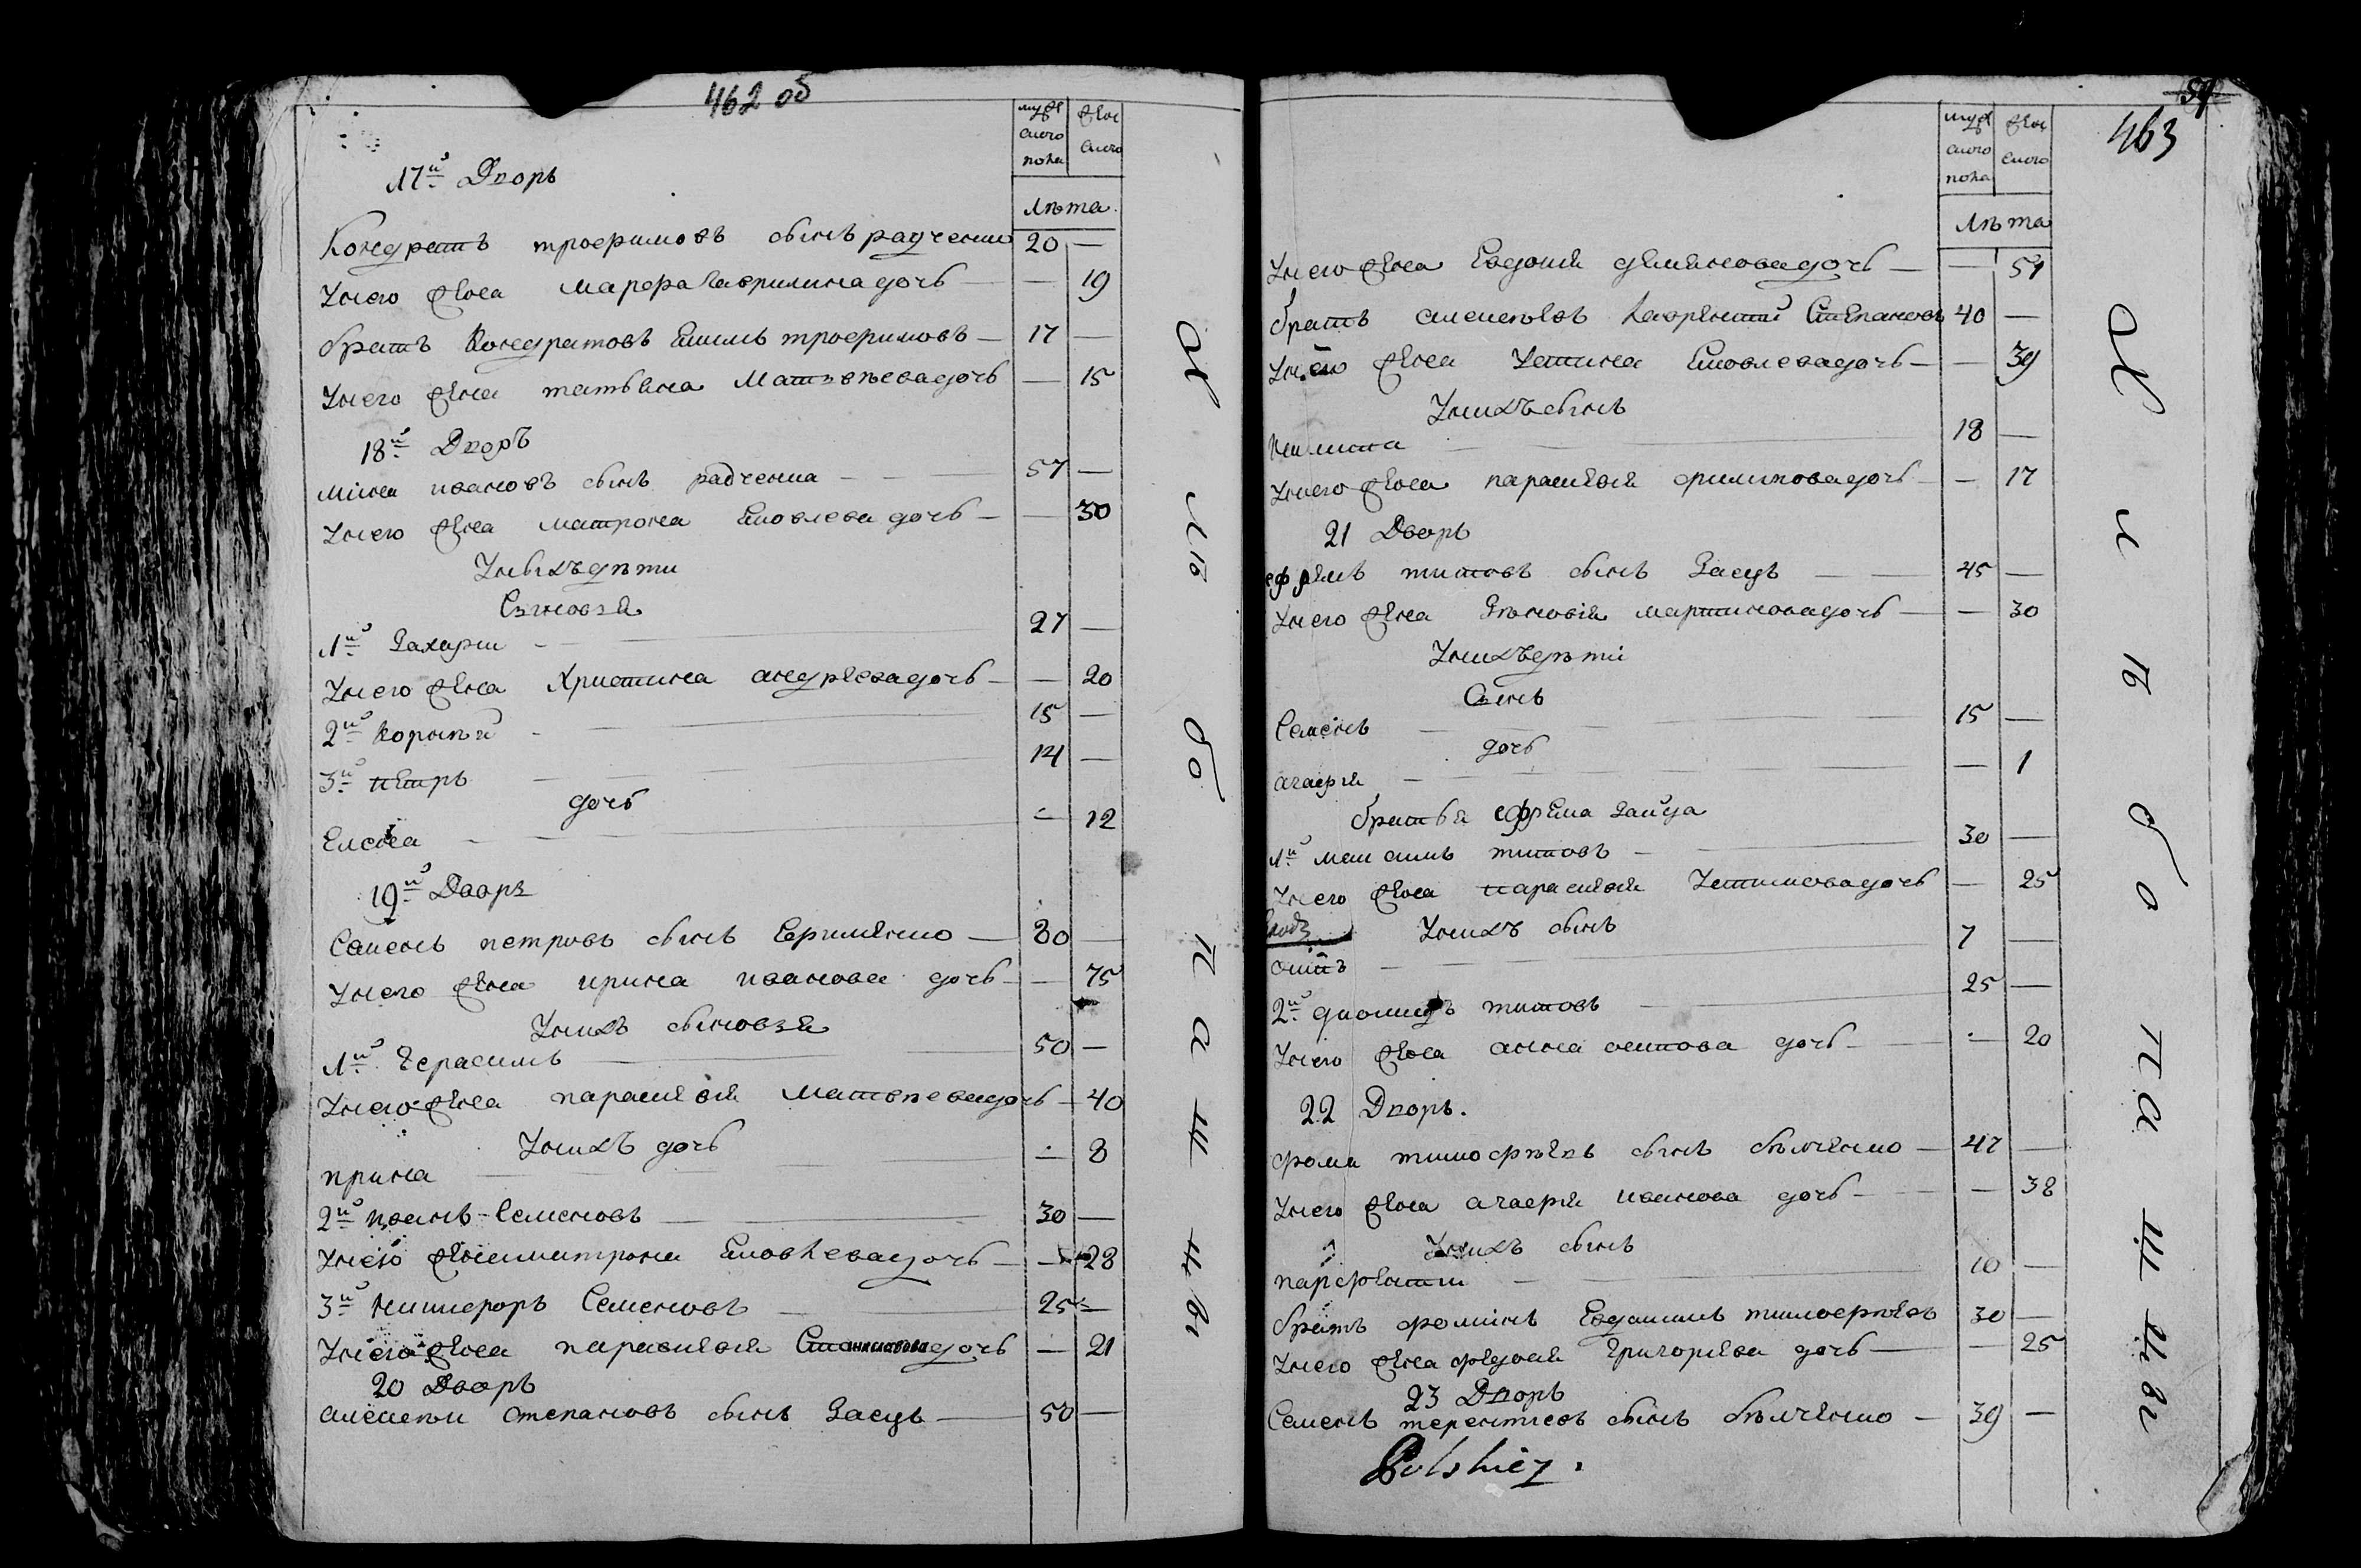 462 об
мужеского пола
женского
Лѣта
17й Дворъ
Кондратъ трофимовъ сынъ радченко 20 —
Унего жена марфа Гаврилина дочь — 19
братъ Кондратовъ Емель трофимовъ — 17 —
Унего жена татьяна Матвѣева дочь — 15
18й Дворъ
Мина ивановъ сынъ радченка — 57 —
Унего жена матрона Яковлева дочь — — 30
Унихъ дѣти
Сыновья
1й Захарий — 27 —
Унего жена Христина андреева дочь — — 20
2й Корнѣй — 15 —
3й петръ — 14 —
дочь
Елена — 12
19й Дворъ
Семенъ петровъ сынъ — 80 —
Унего жена ирина иванова дочь — 75
Унихъ сыновья
1й Герасимъ — 50 —
Унего жена парасковя Матвѣева дочь — 40
Унихъ дочь
ирина — 8
2й иванъ Семеновъ — 30 —
Унего жена матрона Яковлева дочь — 28
3й никифоръ Семеновъ — 25 —
Унего жена парасковя дочь — 21
20 Дворъ
алексѣй степановъ сынъ Заецъ — 50 —
Хлѣбопашцы
54
463
мужеского пола
женского
Лѣта
Унего жена Евдокия дочь — — 51
братъ алексѣевъ Лаврентий Степановъ 40 —
Унего жена Устина Яковлева дочь — — 39
Унихъ сынъ
никита 18 —
Унего жена парасковя филипова дочь — — 17
21 Дворъ
ефремъ титовъ сынъ Заецъ — 45 —
Унего жена Зѣновія мартинова дочь — — 30
Унихъ дѣти
Сынъ
Семенъ — 15 —
дочь
агафия — — 1
братья ефрема Зайца
1й максимъ титовъ — 30 —
Унего жена парасковя Устимова дочь — 25
Унихъ сынъ
осипъ — 7 —
2й титовъ — 25 —
Унего жена анна осипова дочь — 20
22 Дворъ.
фома тимофѣевъ сынъ бѣлченко — 47 —
Унего жена агафия иванова дочь — — 38
Унихъ сынъ
парфентий — 10 —
братъ фоминъ Евдокимъ тимофѣевъ 30 —
Унего жена федося Григорева дочь — — 25
23 Дворъ
Семенъ терентиевъ сынъ бѣлченко — 39 —
Хлѣбопашцы